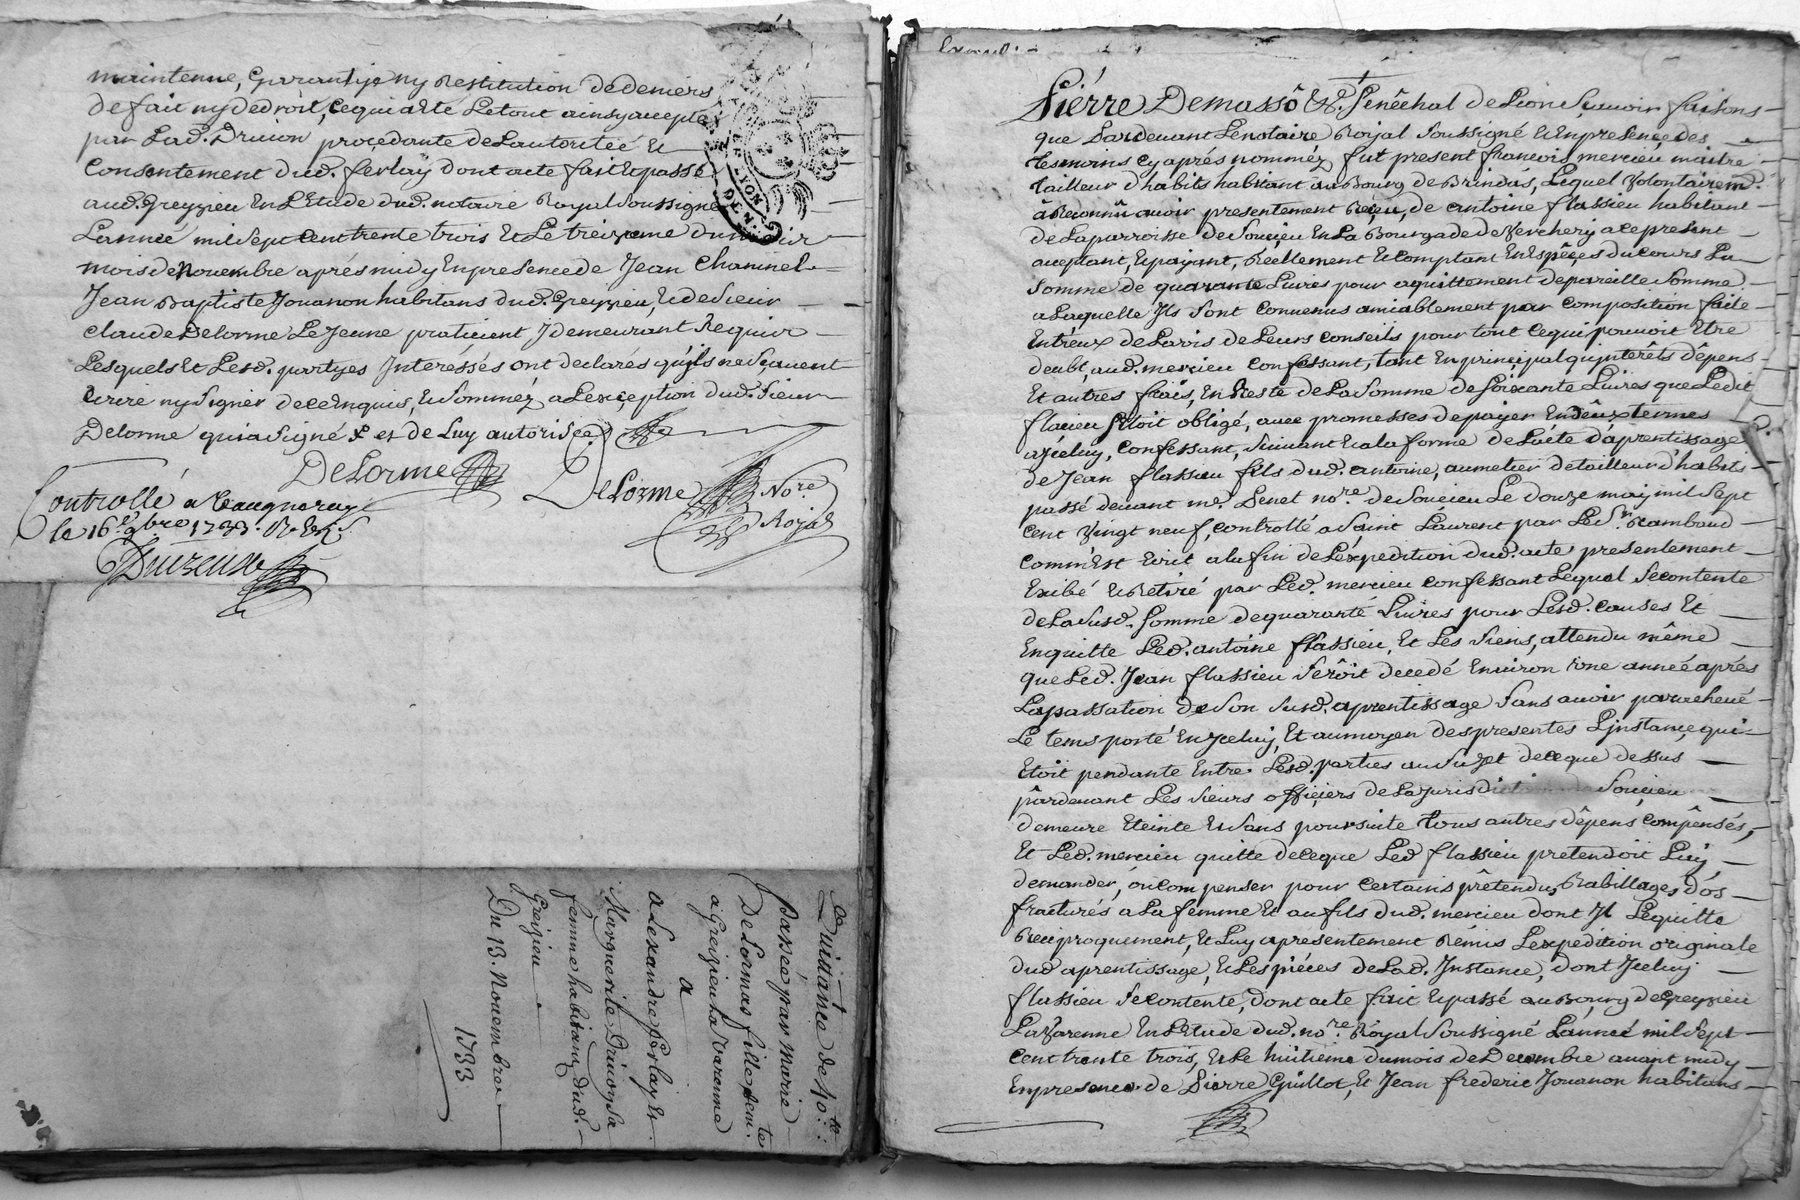 maintenue, Garantye ny Restitution de deniers
de fait ny de droit, ce qui a été Le tout ainsy accepté
par Lad. Drivon procedante de L'autorité Et
Consentement dud. ferlay dont acte fait Et passé
aud. Greyzieu En L'Etude dud. notaire Royal soussigné
L'année mil sept Cent trente trois Et Le treizieme du
mois de Novembre aprés midy En presence de Jean Chaninel
Jean Baptiste Jouanon habitans dud. Greyzieu, Et de Sieur
claude Delorme Le Jeune praticient y demeurant Requis
Lesquels Et Lesd. partyes Interéssés ont declarés qu'ils ne sçavent
Ecrire ny signer de ce Enquis, Et sommez a L'exception dud. Sieur
Delorme qui a signé & et de Luy autorisée
LYON
DEN.
DeLorme DeLorme No.re
Royal
Controllé a Vaugneray
le 16e 9bre 1733.
Quittance de 40 te.
passée par Marie
DeLormas fille
a Greizieu La Varenne
a
Alexandre ferlay Et
Marguerite Drivon sa
femme habitans dud.
Greizieu
Du 13. Novembre
1733
Pierre Demasso &c. Senêchal de Lion Sçavoir faisons
que Pardevant Le notaire Royal soussigné Et En presence des
tesmoins cy aprés nommez fut present francois mercieu maitre
tailleur d'habits habitant au Bourg de Brindas, Lequel Volontairemt.
à Reconnû avoir presentement Reçeu, de antoine flassieu habitant
de La parroisse de Soucieu En La Bourgade de Verchery a ce present
acceptant, Et payant, Reellement Et comptant En Espéçes du cours La
somme de quarante Livres pour aquittement de pareille somme
a Laquelle Ils sont Convenus amiablement par composition faite
Entréux de L'avis de Leurs conseils pour tout ce qui pouvoit Etre
deubt, aud. mercieu confessant, tant En principal qu'interêts dêpens
Et autres frais, En Reste de La somme de soixante Livres que Ledit
flacieu s'Etoit obligé, avec promesses de payer En deux termes
a Iceluy, Confessant, suivant Et a la forme de L'acte d'aprentissage
de Jean flassieu fils dud. antoine, au metier de tailleur d'habits
passé devant me. Lenet nore. de Soucieu Le douze may mil sept
cent Vingt neuf, controllé a Saint Laurent par Led. Sr. Rambaud
comm'Est Ecrit a la fin de L'expedition dud. acte presentement
Exibé Et Retiré par Led. mercieu confessant Lequel se contente
de La Susd. somme de quarante Livres pour Lesd. causes Et
En quitte Led. antoine flassieu, Et Les siens, attendu même
que Led. Jean flassieu serôit decedé Environ Une année aprés
La passation de son Susd. aprentissage sans avoir parachevé
Le tems porté En Iceluy, Et au moyen des presentes L'jnstançe qui
Etoit pendante Entre Lesd. parties au sujet de ce que dessus
pârdevant Les sieurs officiers de La Jurisdiction Soucieu
demeure Eteinte Et sans poursuite tous autres dêpens compênsés,
Et Led. mercieu quitte de ce que Led flassieu pretendoit Luy
demander, ou compenser pour certains prêtendus Rabillages d'os
fracturés a La femme Et au fils dud. mercieu dont Il Le quitte
Reciproquement, Et Luy a presentement Rémis L'expedition originale
dud aprentissage, Et Les piéces de Lad. Instance, dont Iceluy
flassieu se contente, dont acte fait Et passé au Bourg de Greyzieu
La Varenne En L'Etude dud. nore. Royal soussigné L'anneé mil sept
cent trente trois, Et Le huitieme du mois de Decembre avant midy
En presence de Pierre Guillot, Et Jean frederic Jouanon habitans